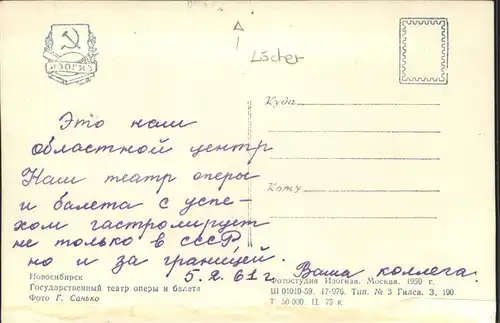 Löcher
ИЗОГИЗ
Куда
Кому
Это наш
областной центр
Наш театр оперы
и балета с успе-
хом гастролирует
не только в СССР,
но и за границей.
5.2.61 г. Ваша коллега.
Новосибирск
Государственный театр оперы и балета
Фото Г. Санько
Фотостудия Изогиза. Москва. 1959 г.
Ш 01010-59. 17-976. Тип. № 3 Гилса. З. 190.
Т 50 000. Ц. 75 к.